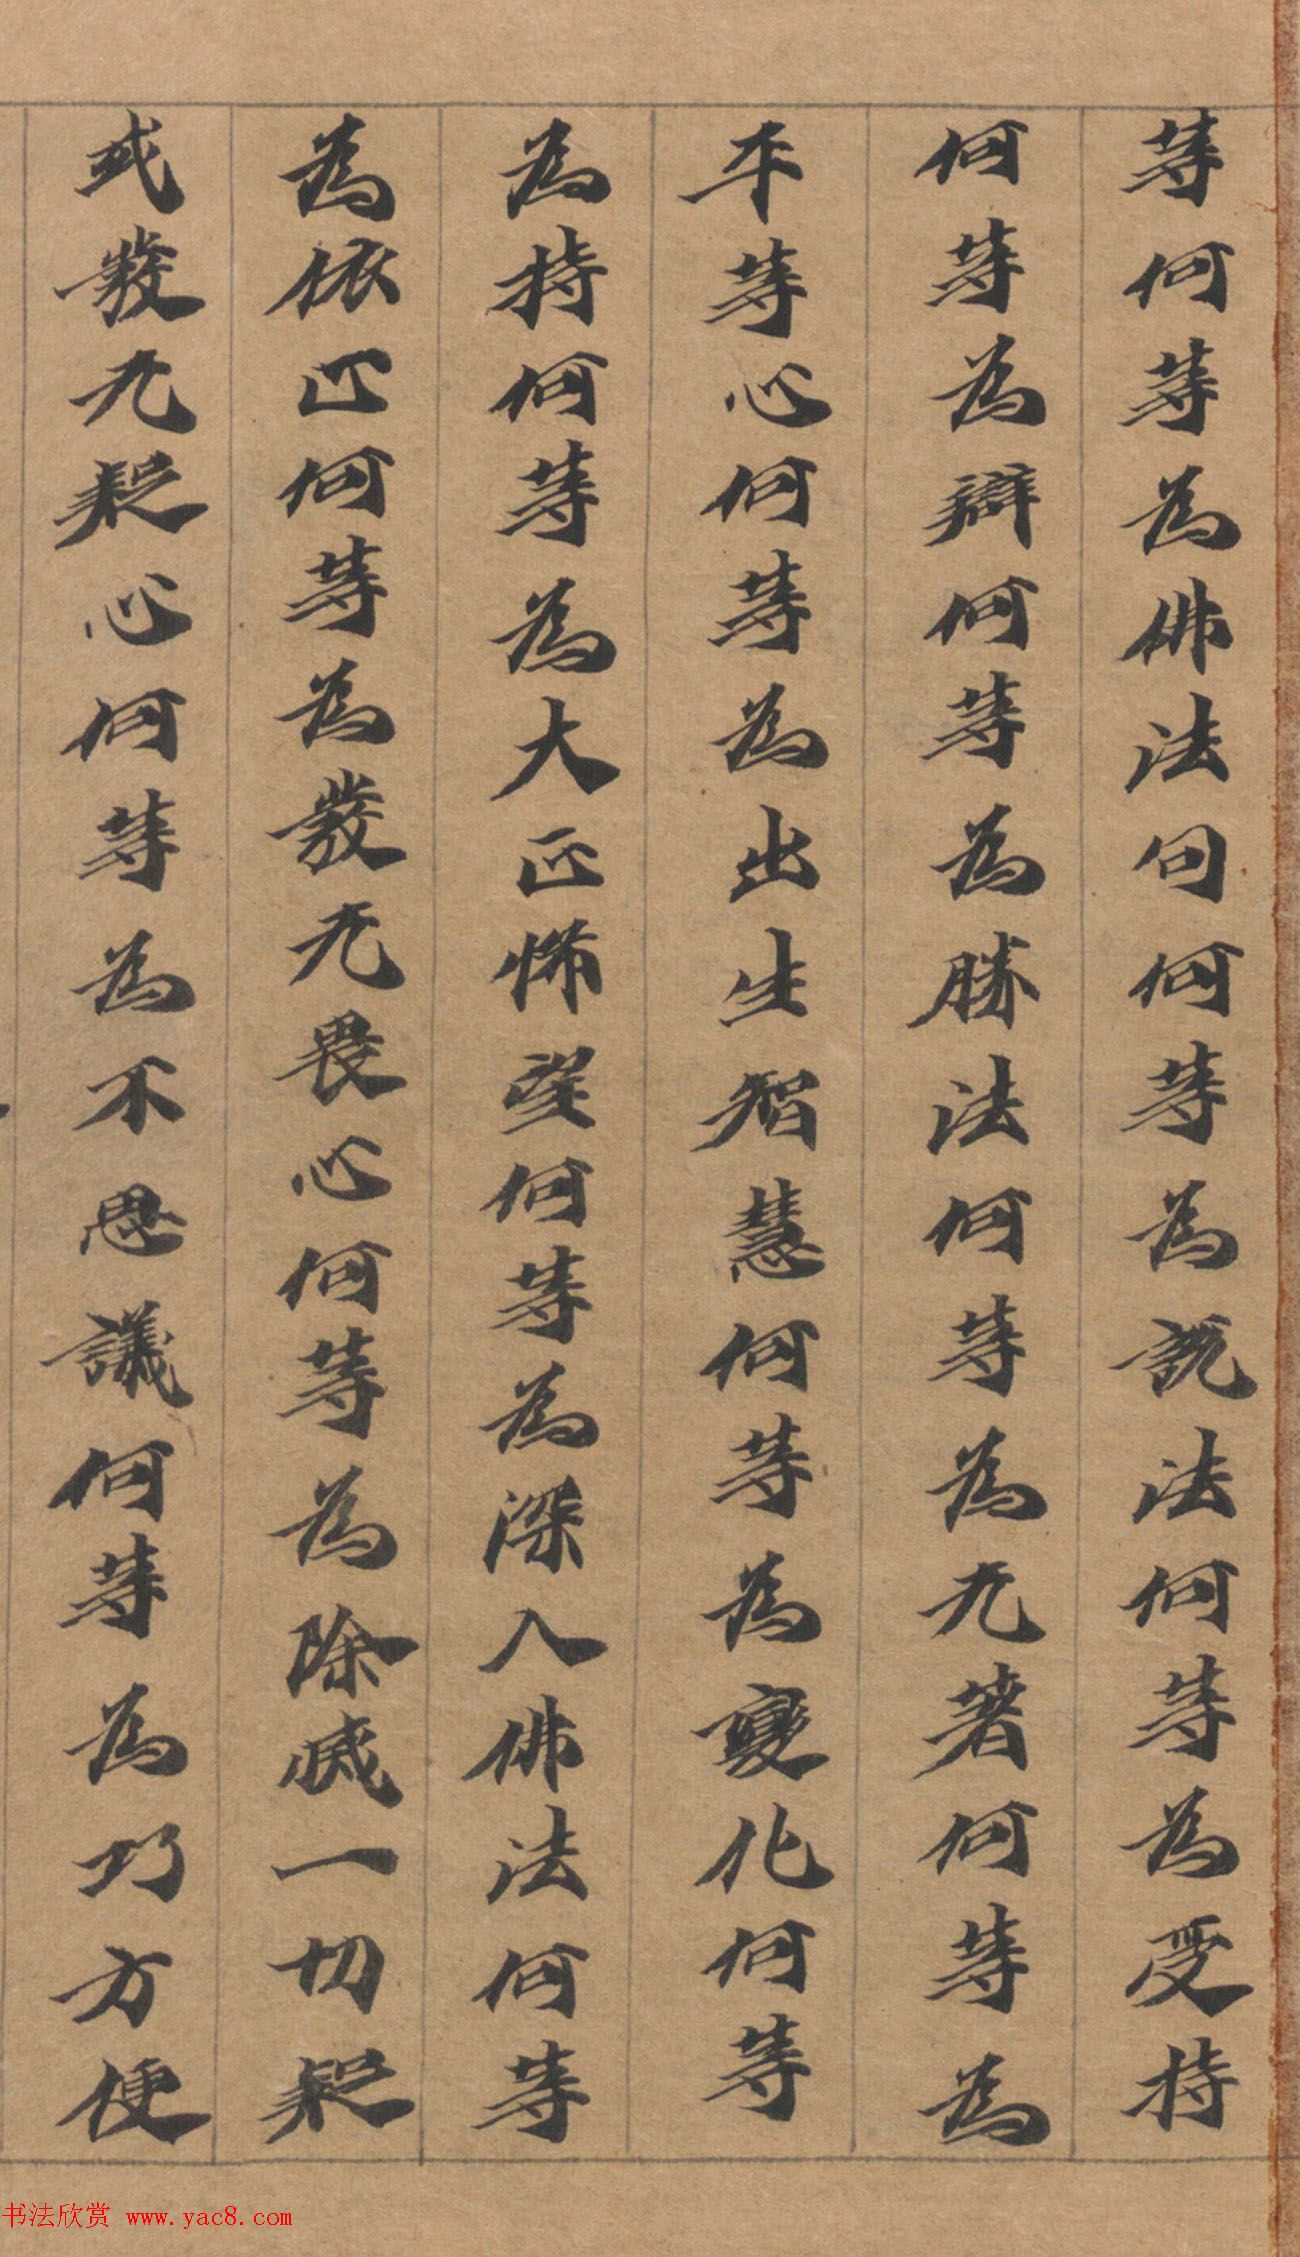 等何等為佛法句何等為說法何等為受持
何等為辯何等為勝法何等為无著何等為
平等心何等為出生智慧何等為變化何等
為持何等為大正悕望何等為深入佛法何等
為依止何等為發无畏心何等為除滅一切疑
或發无疑心何等為不思議何等為巧方便
书法欣赏 www.yac8.com